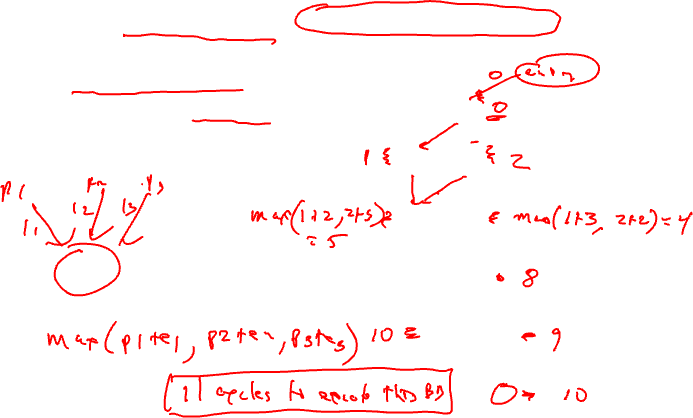 0 entry
0
1 2
p1 p2 p3
l1 l2 l3
max(1+2, 2+3)
= 5
max(1+3, 2+2) = 4
8
max(p1+e1, p2+e2, p3+e3) 10
9
11 cycles to execute this BB
10